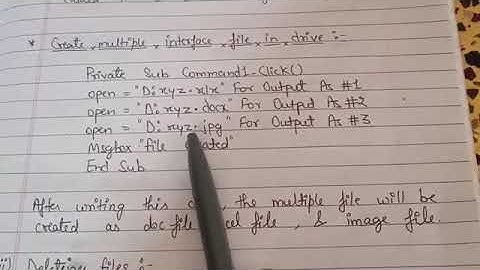 * Create multiple interface file in drive :-
Private Sub Command1_Click()
open = "D: xyz.xlx" For Output As #1
open = "D: xyz.docx" For Output As #2
open = "D: xyz.jpg" For Output As #3
Msgbox "file
End Sub
After writing this the multiple file will be
created as doc file, file, & image file.
ii) Deleting files :-